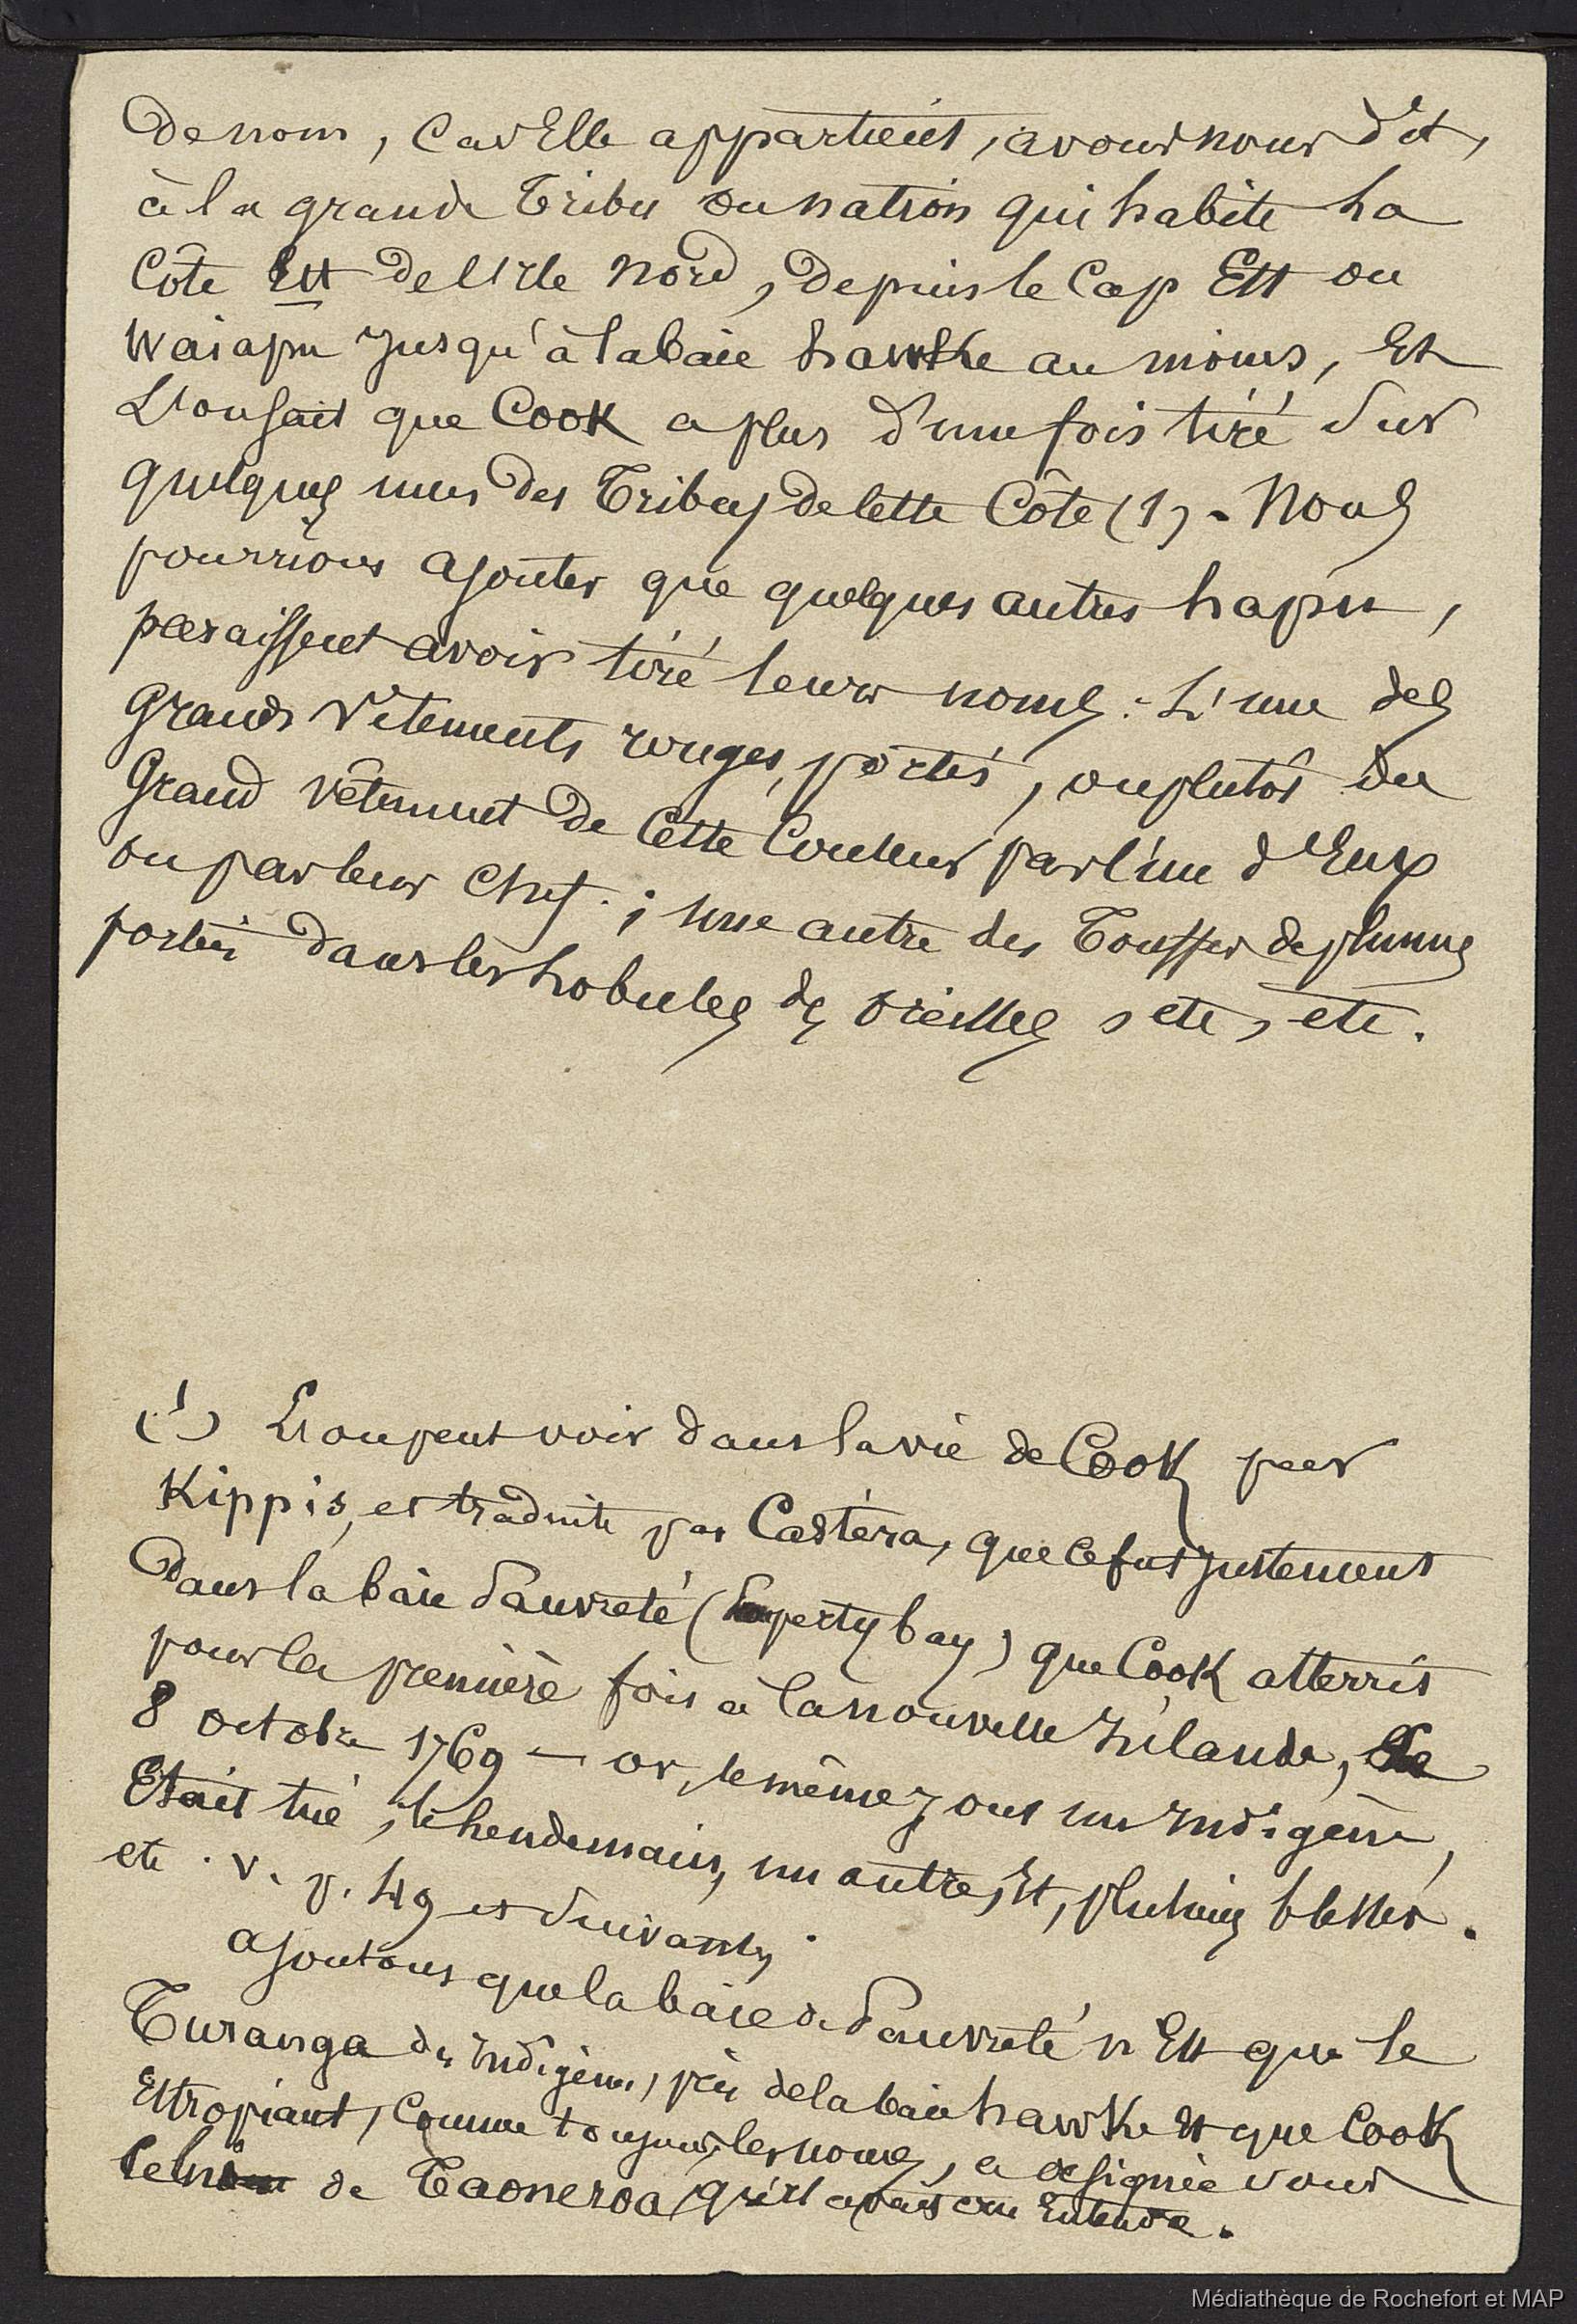 de nom, car Elle appartient, avons nous dit,
à la grande Tribu ou nation qui habite la
Côte Est de l'Ile Nord, depuis le Cap Est ou
Waiapu jusqu'à la baie hawke au moins, Et
L'on sait que Cook a plus d'une fois tiré sur
quelques unes des Tribus de cette Côte (1). Nous
pourrions ajouter que quelques autres hapu,
paraissent avoir tiré leurs noms : L'une des
Grands Vêtements rouges, portés, ou plutôt du
Grand vêtement de Cette Couleur par l'un d'Eux
ou par leur Chef ; une autre des Touffes de plumes
portées dans les lobules des oreilles, etc, etc.
(1) L'on peut voir dans la vie de Cook par
Kippis, et traduite par Castéra, que ce fut justement
dans la baie Pauvreté (perty bay) que Cook atterrit
pour la première fois à la nouvelle Zélande, le
8 octobre 1769 — or, le même jour un Indigène,
Etait tué, le lendemain, un autre, Et, plusieurs blessés.
etc. v. p. 49 et suivants.
ajoutons que la baie de Pauvreté n'Est que le
Turanga des indigènes, près de la baie hawke et que Cook
Estropiant, Comme toujours, les noms, a désignée sous
le nom de Taoneroa qu'il avait cru Entendre.
Médiathèque de Rochefort et MAP